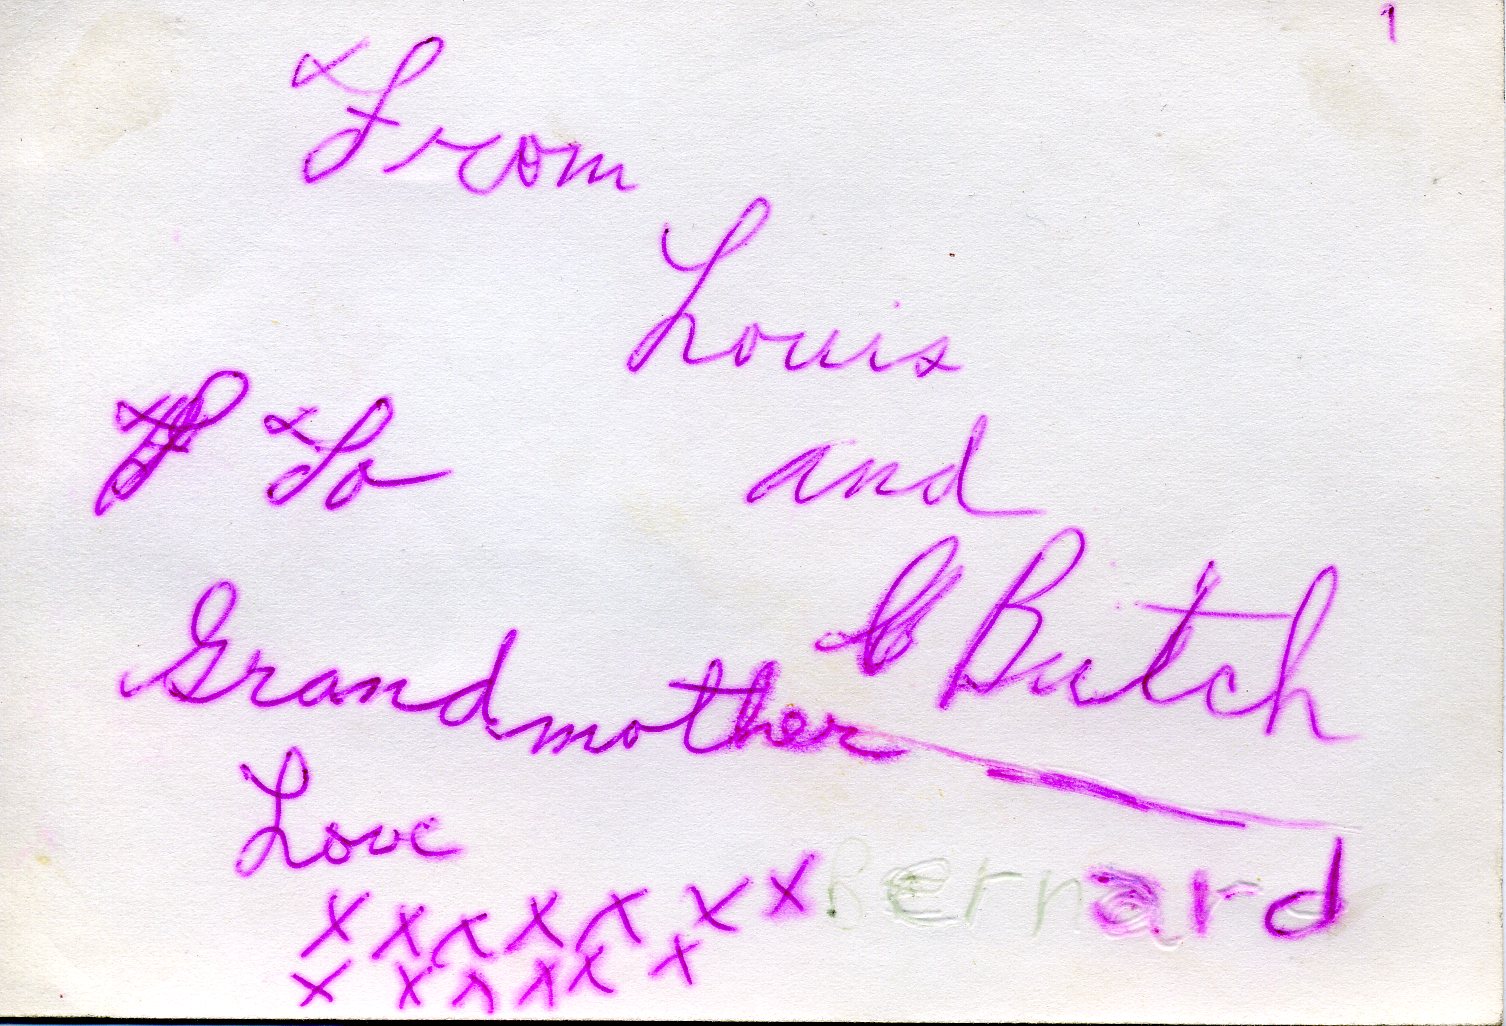 1
From
Louis
To
and
Butch
Grandmother
Love
Bernard
x x x x x x x
x x x x x x